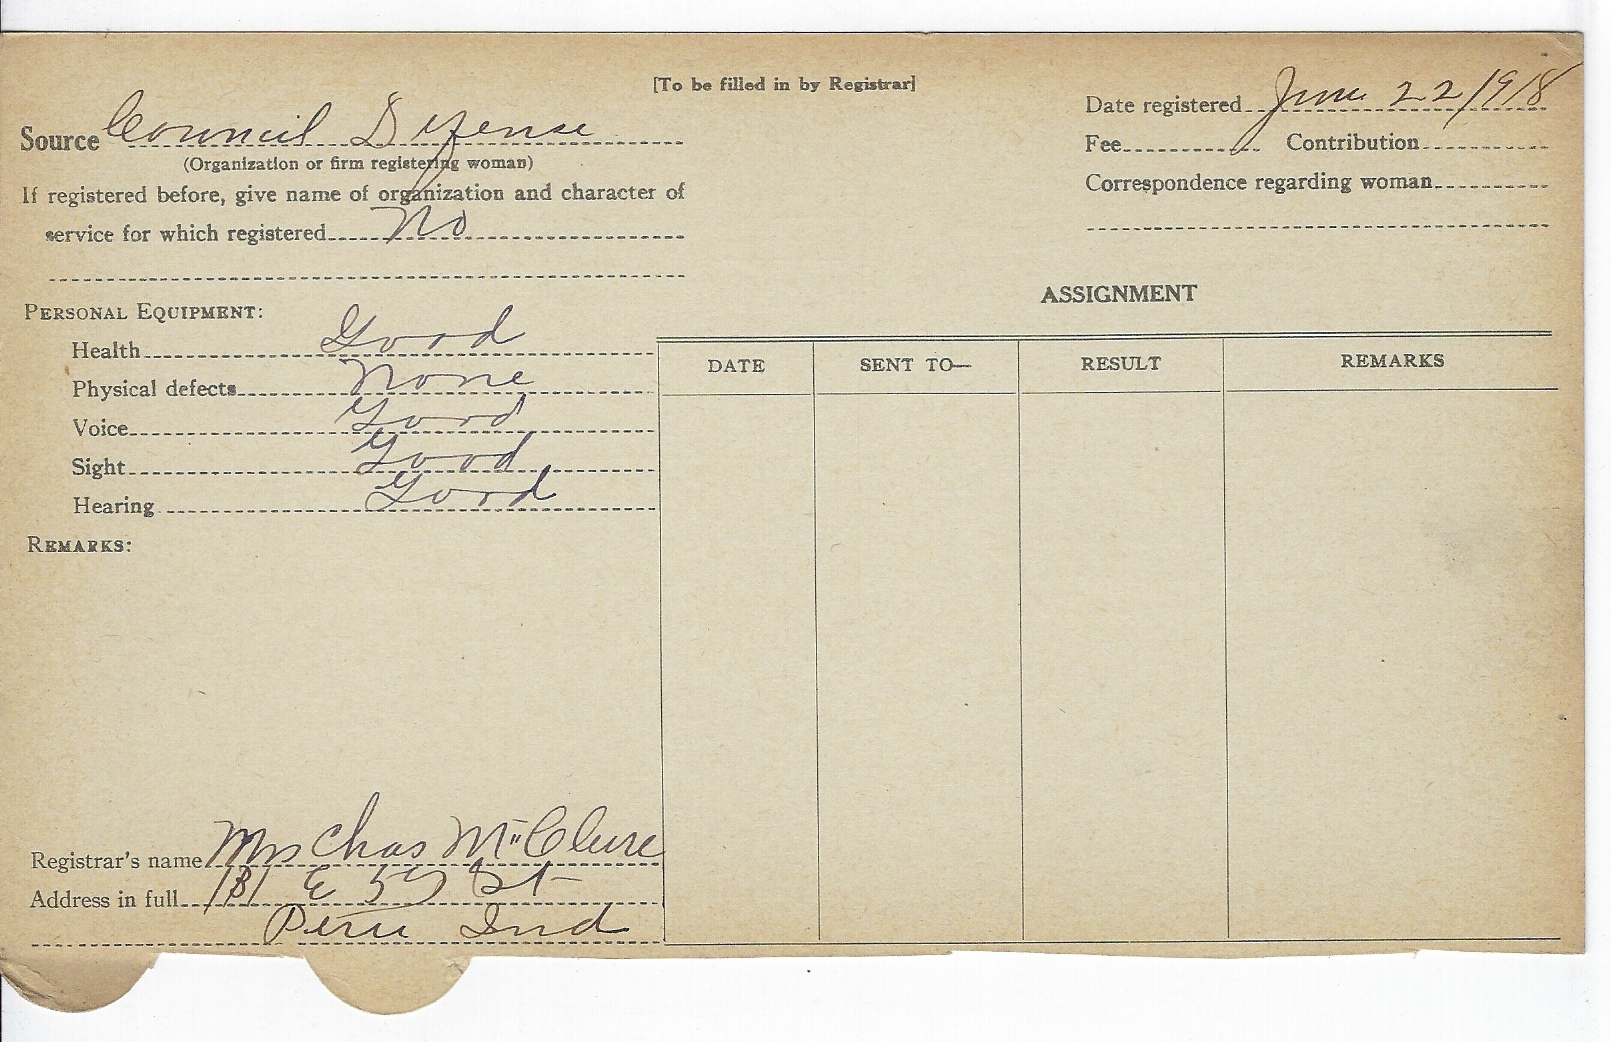 [To be filled in by Registrar]
Date registered June 22/918
Source Council Defense
(Organization or firm registering woman)
Fee Contribution
If registered before, give name of organization and character of
Correspondence regarding woman
service for which registered No
ASSIGNMENT
PERSONAL EQUIPMENT:
Health Good
Physical defects None
Voice Good
Sight Good
Hearing Good
DATE SENT TO— RESULT REMARKS
REMARKS:
Registrar's name Mrs Chas McClure
Address in full E St
Peru Ind